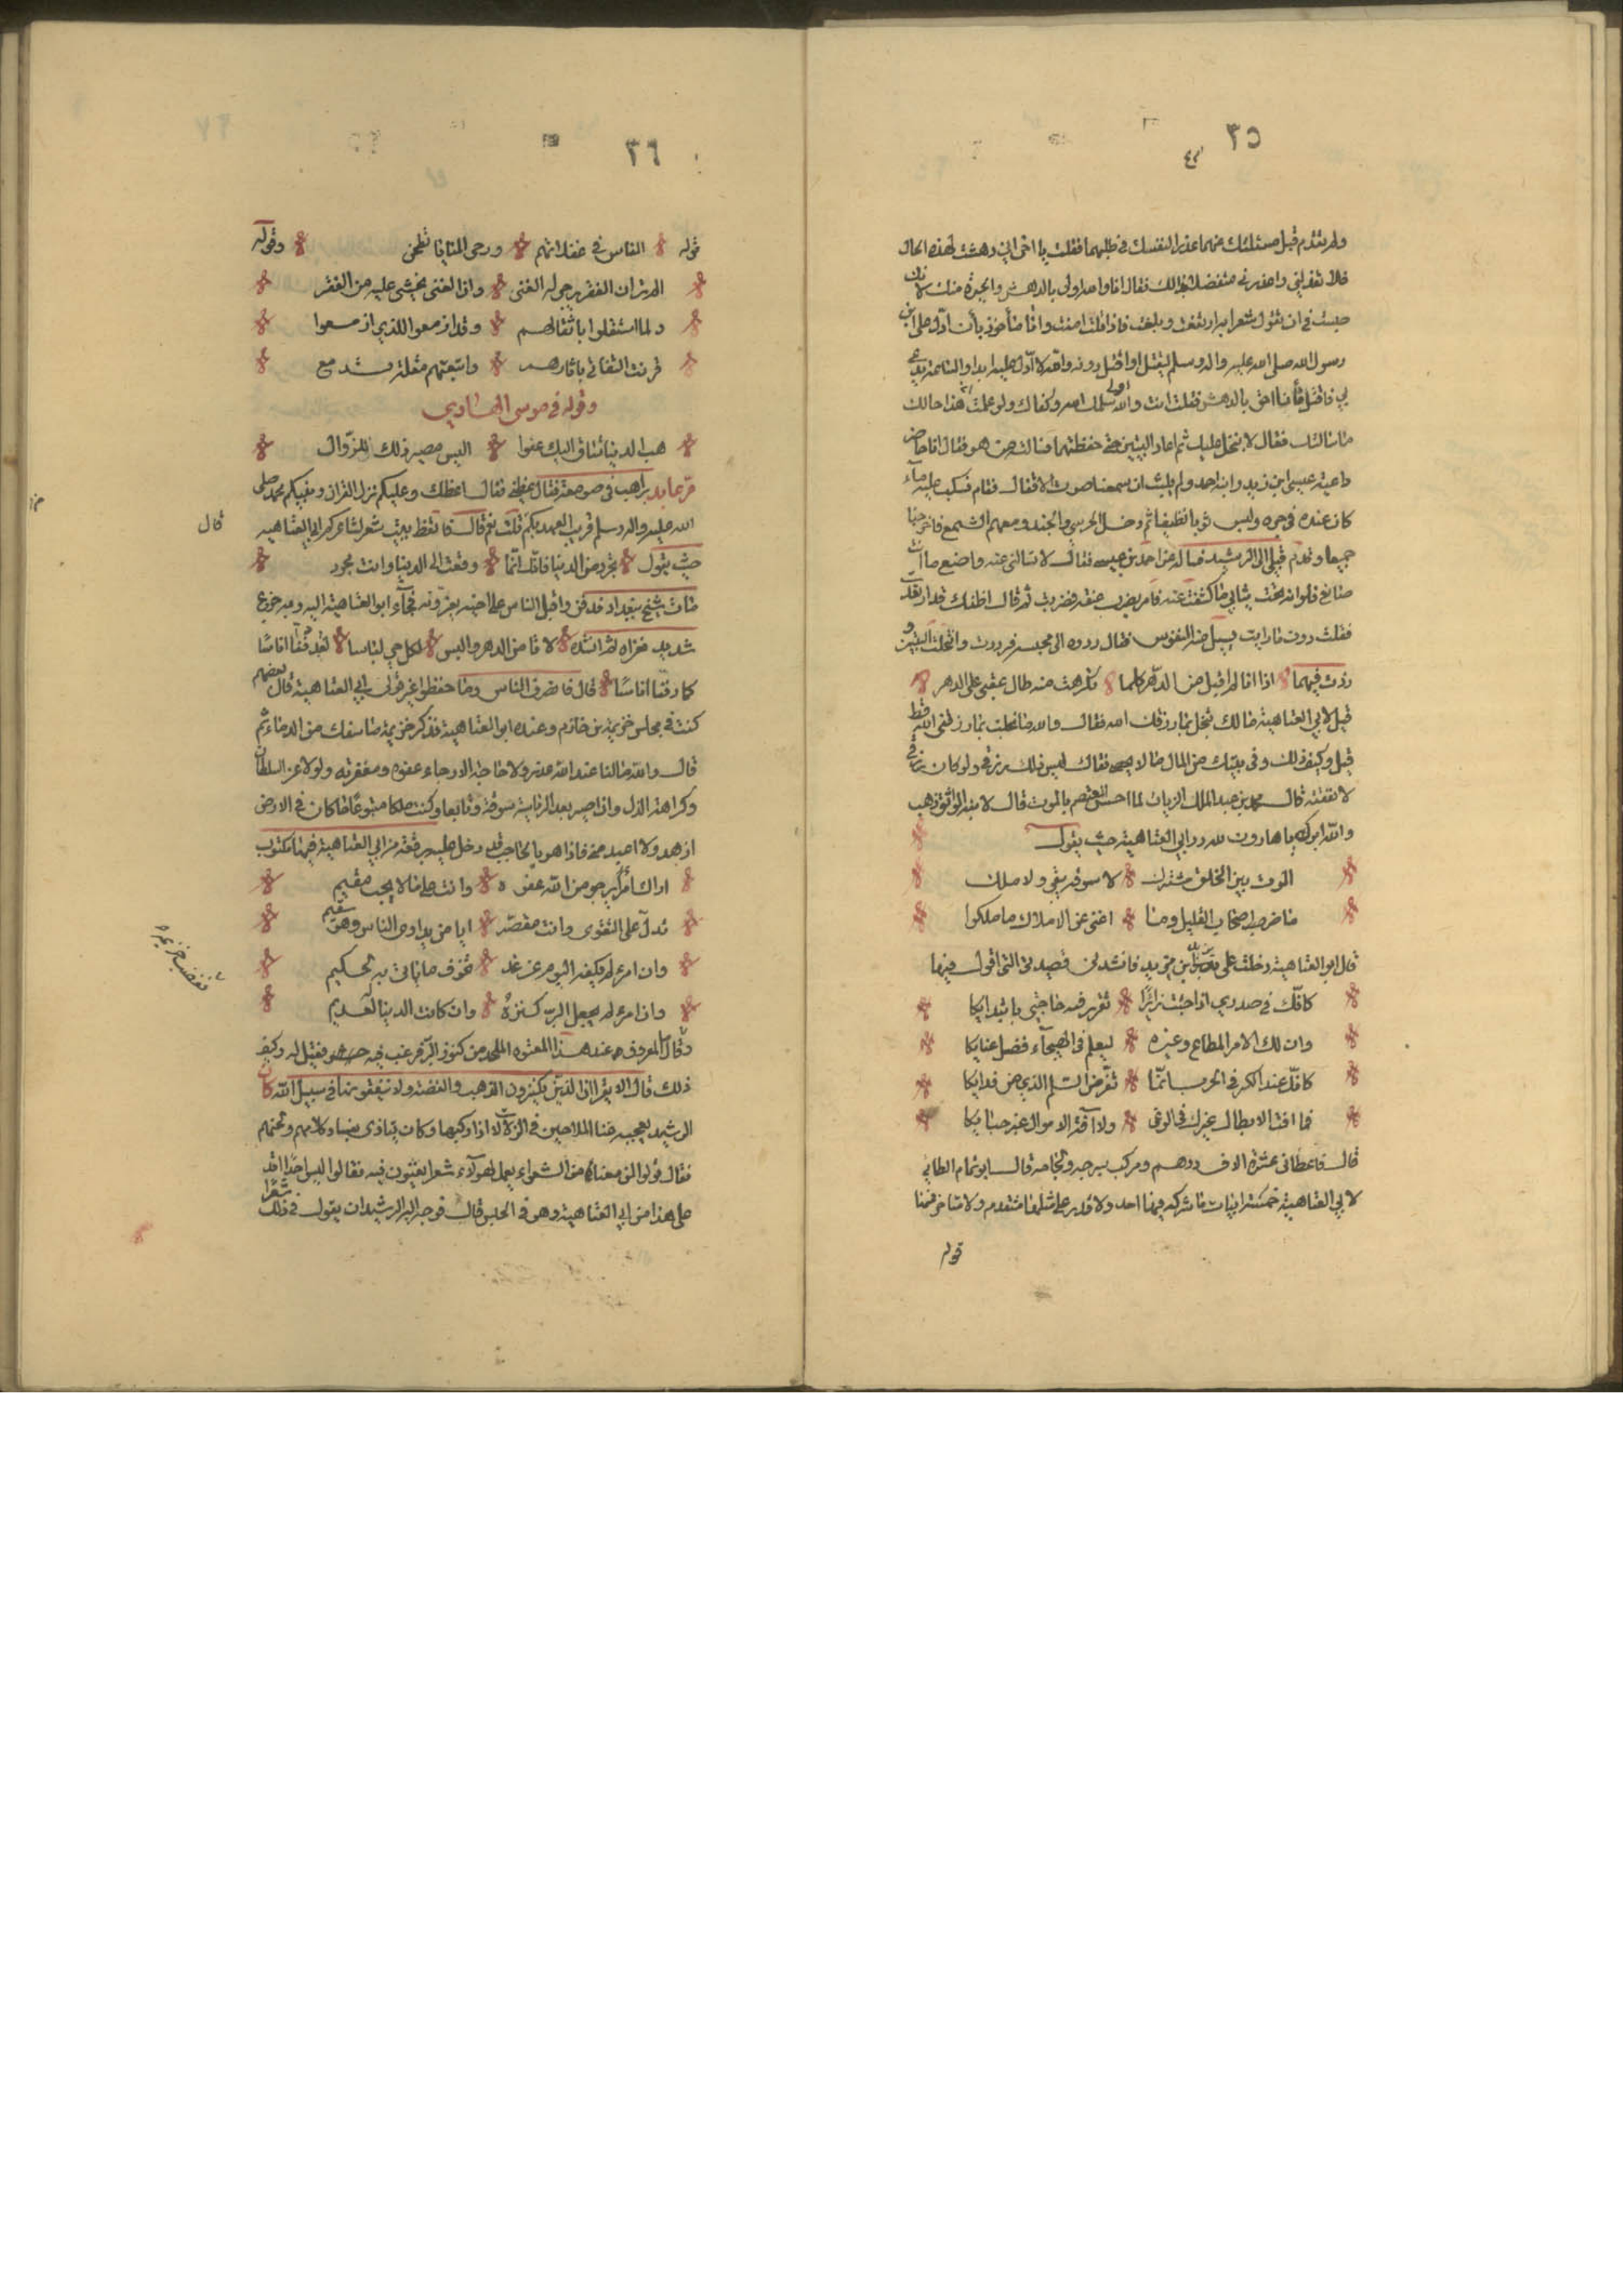 ٣٥
ولم يتقدم قبل مسئلتك عنهما عذرا لنفسك في طلبهما فقلت يا اخي اني دهشت لهذه الحال
فلا تعذلني واعذرني متفضلا بذلك فقال انا والله اولى بالدهش والحيرة منك لانك
حبست في ان تقول شعرا به ارتفعت وبلغت فاذا قلت امنت وانا مأخوذ بأن ادل على ابن
رسول الله صلى الله عليه واله وسلم ليقتل او اقتل دونه والله لا ادل عليه ابدا والساعة يدعى
بي فاقتل فأينا احق بالدهش فقلت انت والله اولى سلمك الله وكفاك ولو علمت ان هذا حالك
ما سألتك فقال لا نبخل عليك ثم اعاد البيتين حتى حفظتهما فسألته من هو فقال انا حاضر
داعية عيسى ابن زيد وابنه احمد ولم يلبث ان سمعنا صوت الاقفال فقام فسكب عليه ماء
كان عنده في جره ولبس ثوبا نظيفا ثم دخل الحرس والجند ومعهم الشمع فاخرجنا
جميعا وقدم قبلي الى الرشيد فساله عن احمد بن عيسى فقال لا تسالني عنه واصنع ما انت
صانع فلو انه تحت ثيابي ما كشفت عنه فامر بضرب عنقه فضربت ثم قال اظنك قد ارتعت
فقلت دون ما رايت يسيل منه النفوس فقال ردوه الى محبسه فرددت وانتحلت البيتين و
زدت فيهما اذا انا لم اقبل من الدهر كلما تكرهت منه طال عتبي على الدهر
قيل لابي العتاهية مالك تبخل بما رزقك الله فقال والله ما بخلت بما رزقني الله قط
قيل وكيف ذلك وفي بيتك من المال ما لا يحصى فقال ليس ذلك رزقي ولو كان رزقي
لانفقته قال محمد بن عبد الملك الزيات لما احس المعتصم بالموت قال لابنه الواثق ذهب
والله ابوك يا هارون لله در ابي العتاهية حيث يقول
الموت بين الخلق مشترك لا سوقة يبقى ولا ملك
ما ضر اصحاب القليل وما اغنى عن الاملاك ما ملكوا
قال ابو العتاهية دخلت على يزيد ابن مزيد فانشدته قصيدتي التي اقول فيها
كأنك في صدري اذا جئت زائرا تقرر فيه حاجتي بابتدايكا
وان لك الامر المطاع وغيره ليعلم في الهيجآء فضل عنايكا
كأنك عند الكر في الحرب انما تفر من السلم الذي من ورايكا
فما افة الابطال غيرك في الوغى ولا آفة الاموال غير حبايكا
قال فاعطاني عشرة الاف درهم ومركب بسرجه ولجامه قال ابو تمام الطايي
لابي العتاهية خمسة ابيات ما شركه فيها احد ولا قدر على مثلها متقدم ولا متاخر منها
قوله
٣٦
قوله الناس في غفلاتهم ورحى المنايا تطحن وقوله
الم تر ان الفقر يرجى له الغنى وان الغنى يخشى عليه من الفقر
ولما استقلوا باثقالهم وقد ازمعوا للذي ازمعوا
قرنت التفاتي باثارهم واتبعتهم مقلة تدمع
وقوله في موسى الهادي
هب الدنيا تساق اليك عفوا اليس مصير ذلك للزوال
مر عابد براهب في صومعة فقال عظني فقال اعظك وعليكم نزل القران ونبيكم محمد صلى
الله عليه واله وسلم قريب العهد بكم قلت نعم قال فاتعظ ببيت شعر لشاعركم ابي العتاهيه
حيث يقول تجرد من الدنيا فانك انما وقعت الى الدنيا وانت مجرد
قال
مات شيخ ببغداد فدفن واقبل الناس على اخيه يعزونه فجآء ابو العتاهية اليه وبه جزع
شديد فعزاه ثم انشده لا تأمن الدهر والبس لكل حي لباسا لقد دفنا اناسا
كما دفنا اناسا قال فانصرف الناس وما حفظوا غير قول ابي العتاهية قال بعضهم
كنت في مجلس خزيمة بن خازم وعنده ابو العتاهية فذكر خزيمة ما سفك من الدماء ثم
قال والله ما لنا عند الله عذر ولا حاجة الا رجاء عفوه ومغفرته ولولا عز السلطان
وكراهة الذل وان اصير بعد الرئاسة سوقة وتابعا وكنت ملكا متبوعا ما كان في الارض
ازهد ولا اعبد مني فاذا هو بالحاجب قد دخل عليه برقعة من ابي العتاهية فيها مكتوب
اراك امرأ يرجو من الله عفوه وانت على ما لا يحب مقيم
تدل على التقوى وانت مقصر ايا من يداوي الناس وهو سقيم
وان امرء لم يلهه اليوم عن غد تخوف ما ياتي به لحكيم
وان امرء لم يجعل البر كنزه وان كانت الدنيا له لعديم
فغضب خزيمة
وقال المعروف عند هذا المعتوه الملحد من كنوز البر فيرغب فيه حر فقيل له وكيف
ذلك قال الا يقرا ان الذين يكنزون الذهب والفضة ولا ينفقونها في سبيل الله كان
الرشيد يعجبه غنا الملاحين في الزلالات اذا ركبها وكان يتاذى بفساد كلامهم ولحنهم
فقال قولوا لمن معنا من الشعراء يعمل لهؤلاء شعرا يغنون فيه فقالوا ليس احدا اقدر
على هذا من ابي العتاهية وهو في الحبس قال فوجه اليه الرشيد ان يقول في ذلك شعرا